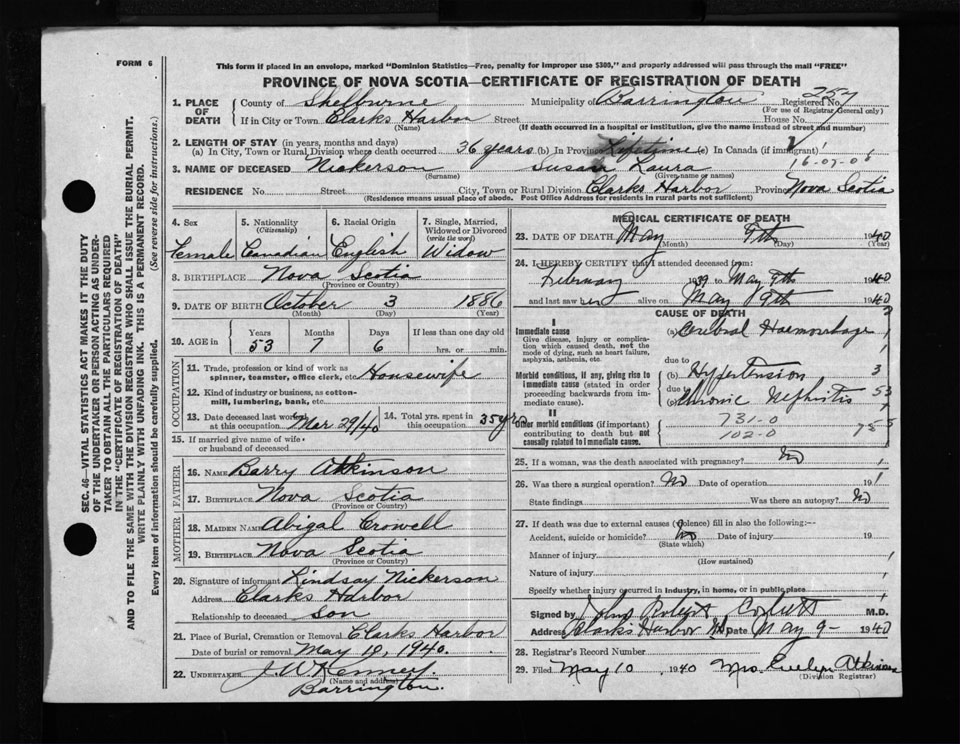 FORM 6
This form if placed in an envelope, marked "Dominion Statistics—Free, penalty for improper use $300," and properly addressed will pass through the mail "FREE"
PROVINCE OF NOVA SCOTIA—CERTIFICATE OF REGISTRATION OF DEATH
257
1. PLACE OF DEATH County of Shelburne Municipality of Barrington Registered No.
(For use of Registrar General only)
If in City or Town Clarks Harbor Street House No.
(Name) (If death occurred in a hospital or institution, give the name instead of street and number)
2. LENGTH OF STAY (in years, months and days)
(a) In City, Town or Rural Division where death occurred 36 years (b) In Province Lifetime (c) In Canada (if immigrant)
16-07-06
3. NAME OF DECEASED Nickerson Susan Laura
(Surname) (Given name or names)
RESIDENCE No. Street City, Town or Rural Division Clarks Harbor Province Nova Scotia
(Residence means usual place of abode. Post Office Address for residents in rural parts not sufficient)
SEC. 46—VITAL STATISTICS ACT MAKES IT THE DUTY
OF THE UNDERTAKER OR PERSON ACTING AS UNDER-
TAKER TO OBTAIN ALL THE PARTICULARS REQUIRED
IN THE "CERTIFICATE OF REGISTRATION OF DEATH"
AND TO FILE THE SAME WITH THE DIVISION REGISTRAR WHO SHALL ISSUE THE BURIAL PERMIT.
WRITE PLAINLY WITH UNFADING INK. THIS IS A PERMANENT RECORD.
Every item of information should be carefully supplied. (See reverse side for instructions.)
4. Sex 5. Nationality 6. Racial Origin 7. Single, Married,
(Citizenship) Widowed or Divorced
(write the word)
Female Canadian English Widow
8. BIRTHPLACE Nova Scotia
(Province or Country)
9. DATE OF BIRTH October 3 1886
(Month) (Day) (Year)
10. AGE in Years Months Days If less than one day old
53 7 6 hrs. or min.
OCCUPATION
11. Trade, profession or kind of work as
spinner, teamster, office clerk, etc. Housewife
12. Kind of industry or business, as cotton-
mill, lumbering, bank, etc.
13. Date deceased last worked
at this occupation Mar 29/40
14. Total yrs. spent in
this occupation 35 yrs
15. If married give name of wife
or husband of deceased
FATHER
16. NAME Barry Atkinson
17. BIRTHPLACE Nova Scotia
(Province or Country)
MOTHER
18. MAIDEN NAME Abigal Crowell
19. BIRTHPLACE Nova Scotia
(Province or Country)
20. Signature of informant Lindsay Nickerson
Address Clarks Harbor
Relationship to deceased Son
21. Place of Burial, Cremation or Removal Clarks Harbor
Date of burial or removal May 10, 1940.
22. UNDERTAKER J. W Kenney
(Name and address)
Barrington.
MEDICAL CERTIFICATE OF DEATH
23. DATE OF DEATH May 9th 1940
(Month) (Day) (Year)
24. I HEREBY CERTIFY that I attended deceased from:
February 1939 to May 9th 1940
and last saw her alive on May 9th 1940
CAUSE OF DEATH
I
Immediate cause (a) Cerebral Haemorrhage
Give disease, injury or complica-
tion which caused death, not the
mode of dying, such as heart failure,
asphyxia, asthenia, etc.
due to
Morbid conditions, if any, giving rise to
immediate cause (stated in order
proceeding backwards from im-
mediate cause).
(b) Hypertension 3
due to
(c) Chronic Nephritis 53
II
Other morbid conditions (if important)
contributing to death but not
causally related to immediate cause.
731-0
102-0
25. If a woman, was the death associated with pregnancy? No
26. Was there a surgical operation? No Date of operation 19
State findings Was there an autopsy? No
27. If death was due to external causes (violence) fill in also the following:—
Accident, suicide or homicide? No Date of injury 19
(State which)
Manner of injury
(How sustained)
Nature of injury
Specify whether injury occurred in industry, in home, or in public place
Signed by John Robert Corbett M.D.
Address Clarks Harbor NS Date May 9- 1940
28. Registrar's Record Number
29. Filed May 10 1940 Mrs. Evelyn Atkinson
(Division Registrar)